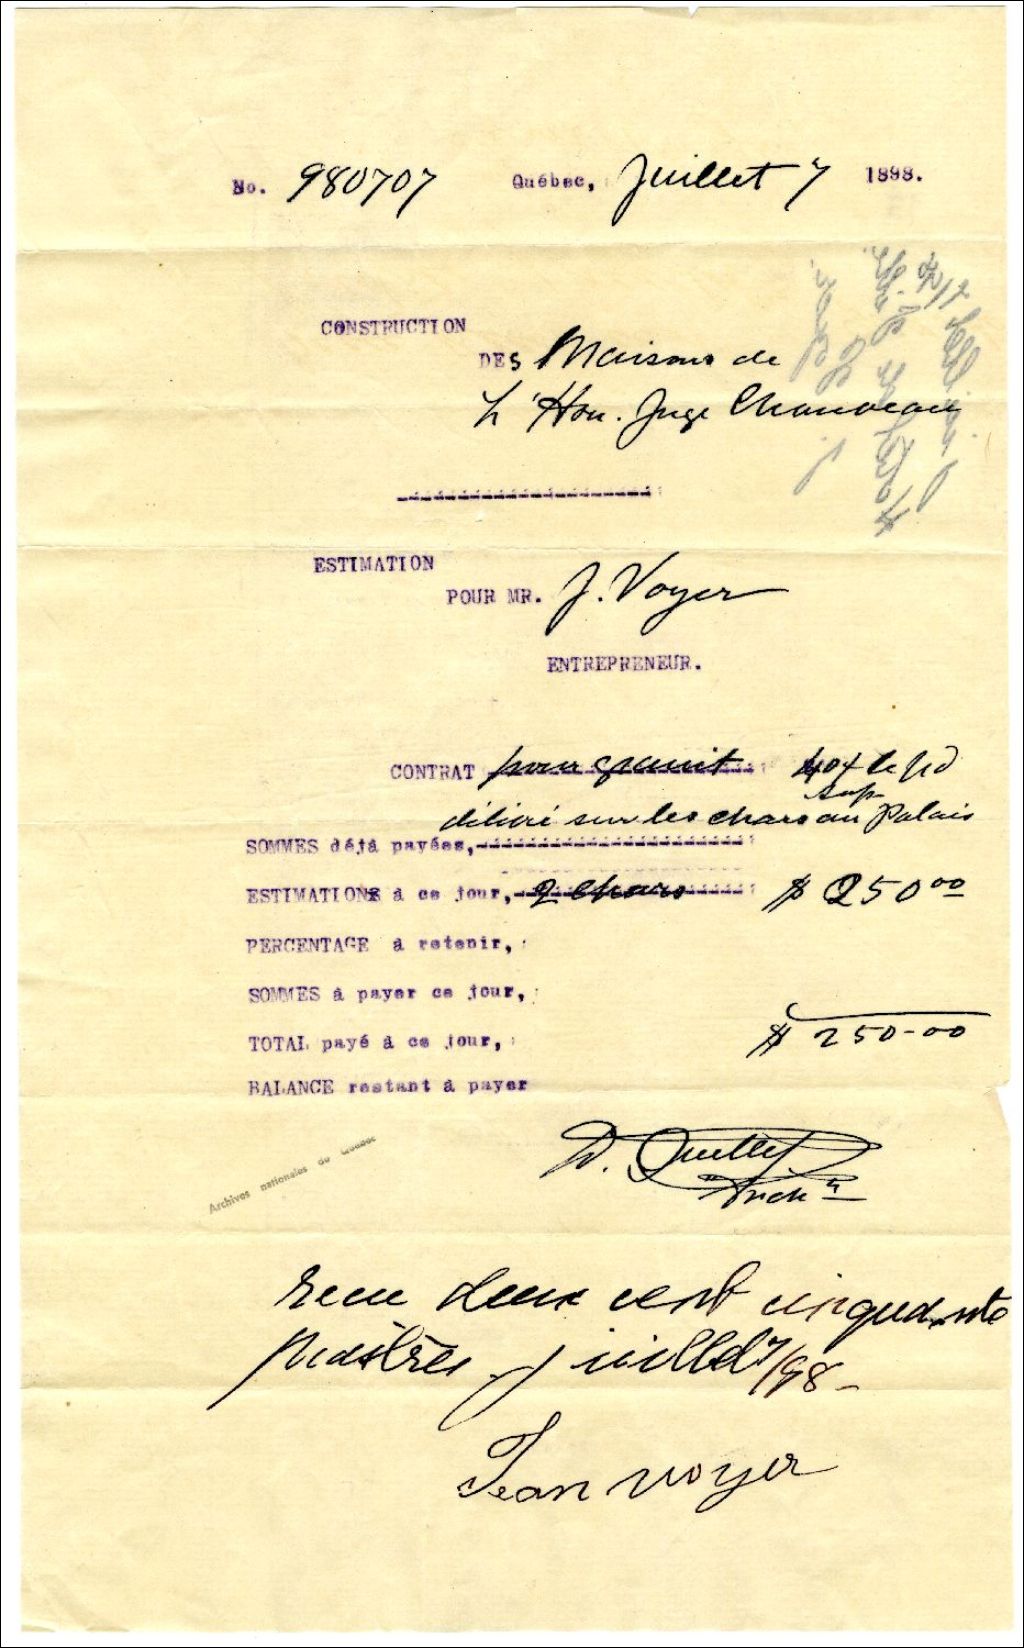 No. 980707 Québec, Juillet 7 1898.
CONSTRUCTION
DES Maisons de
L'Hon. Juge Chauveau
ESTIMATION
POUR MR. J. Voyer
ENTREPRENEUR.
CONTRAT pour granit 40¢ le pd
sup
délivré sur les chars au Palais
SOMMES déjà payées,
ESTIMATIONS à ce jour, 2 chars $ 250 00
PERCENTAGE à retenir,
SOMMES à payer ce jour,
TOTAL payé à ce jour, $ 250-00
BALANCE restant à payer
D. Ouellet
Arch
Archives nationales du Québec
recu deux cent cinquante
piastres juillet 7/98-
Jean Voyer